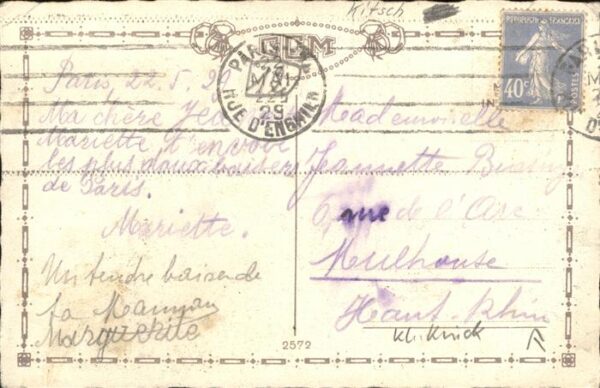 Kitsch
GDM
REPUBLIQUE FRANÇAISE
40c
POSTES
PARIS
RUE D'ENGHIEN
Paris, 22.5.29
Ma chère
Mariette t'envoie
les plus doux baisers
de Paris.
Mariette.
Un tendre baiser de
ta Maman
Marguerite
Mademoiselle
Jeannette
6, rue de l'Arc
Mulhouse
Haut-Rhin
2572